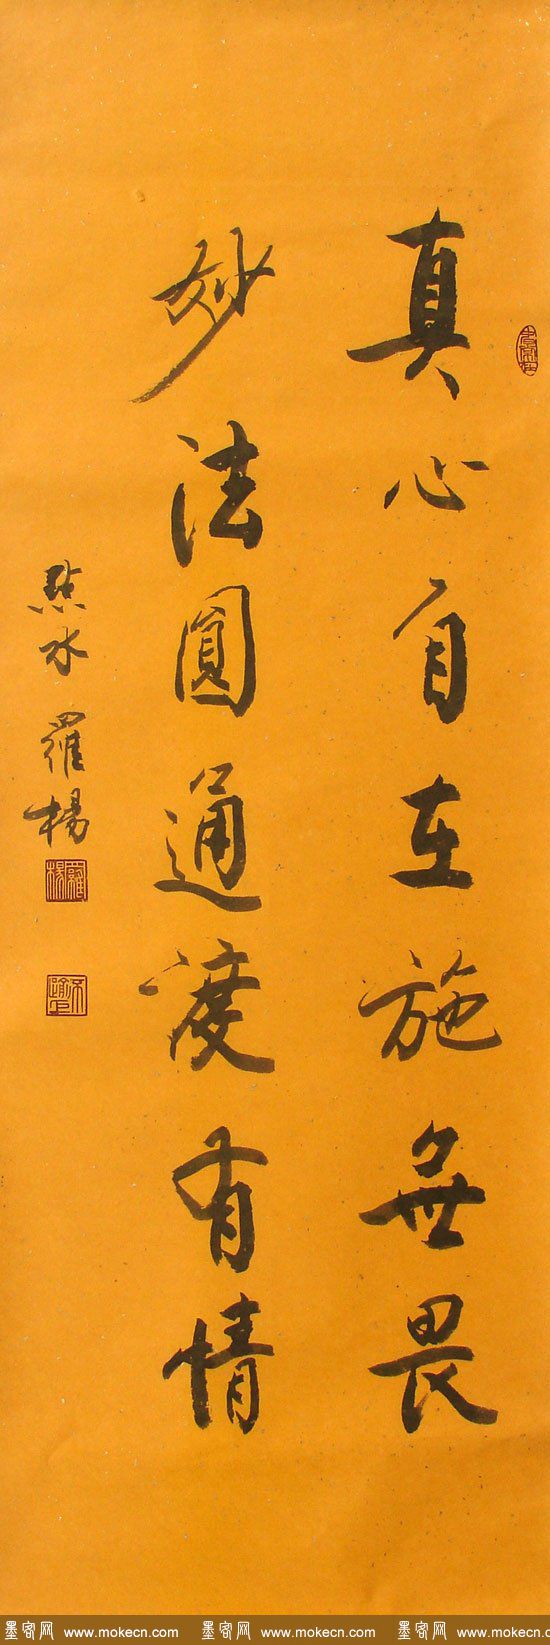 真心自在施無畏
妙法圓通渡有情
點水 羅楊
羅楊
墨客网 www.mokecn.com 墨客网 www.mokecn.com 墨客网 www.mokecn.co